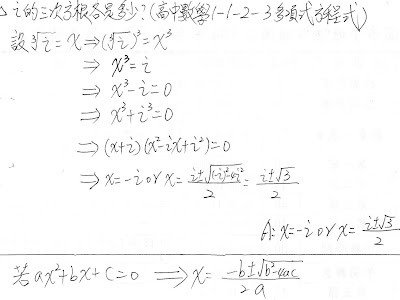 △ i的三次方根各是多少?(高中數學1-1-2-3多項式方程式)
設∛i = x ⇒ (∛i)³ = x³
⇒ x³ = i
⇒ x³ - i = 0
⇒ x³ + i³ = 0
⇒ (x+i)(x²-ix+i²) = 0
⇒ x = -i or x = (i±√((-i)²-4i²))/2 = (i±√3)/2
A: x = -i or x = (i±√3)/2
若ax²+bx+c=0 ⇒ x = (-b±√(b²-4ac))/(2a)